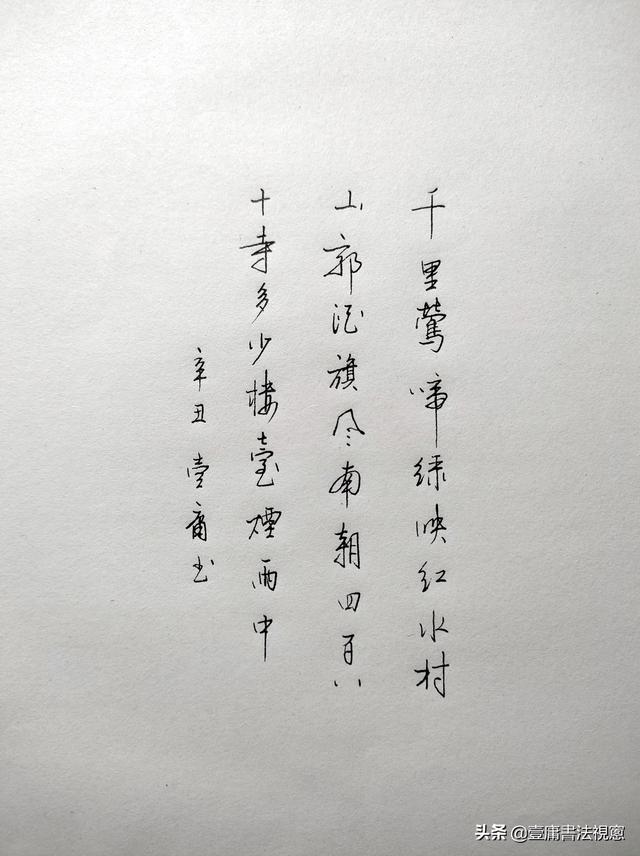 千里鶯啼绿映红水村
山郭酒旗风南朝四百八
十寺多少楼臺煙雨中
辛丑 壹庸书
头条 @壹庸書法視窻